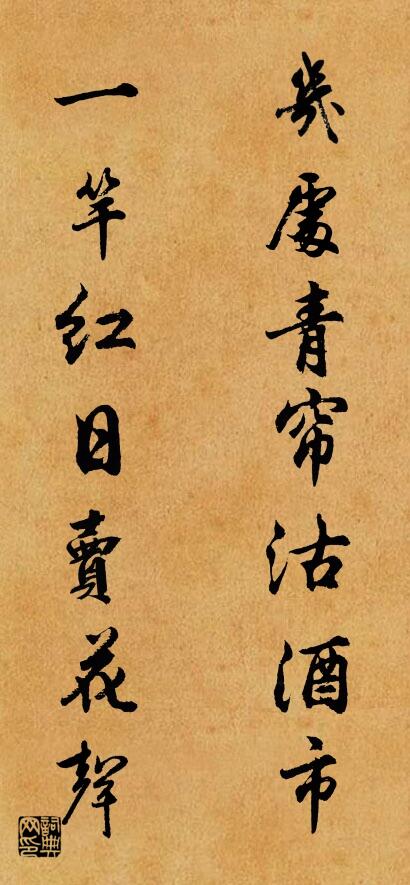 幾處青帘沽酒市
一竿紅日賣花聲
詞典網印